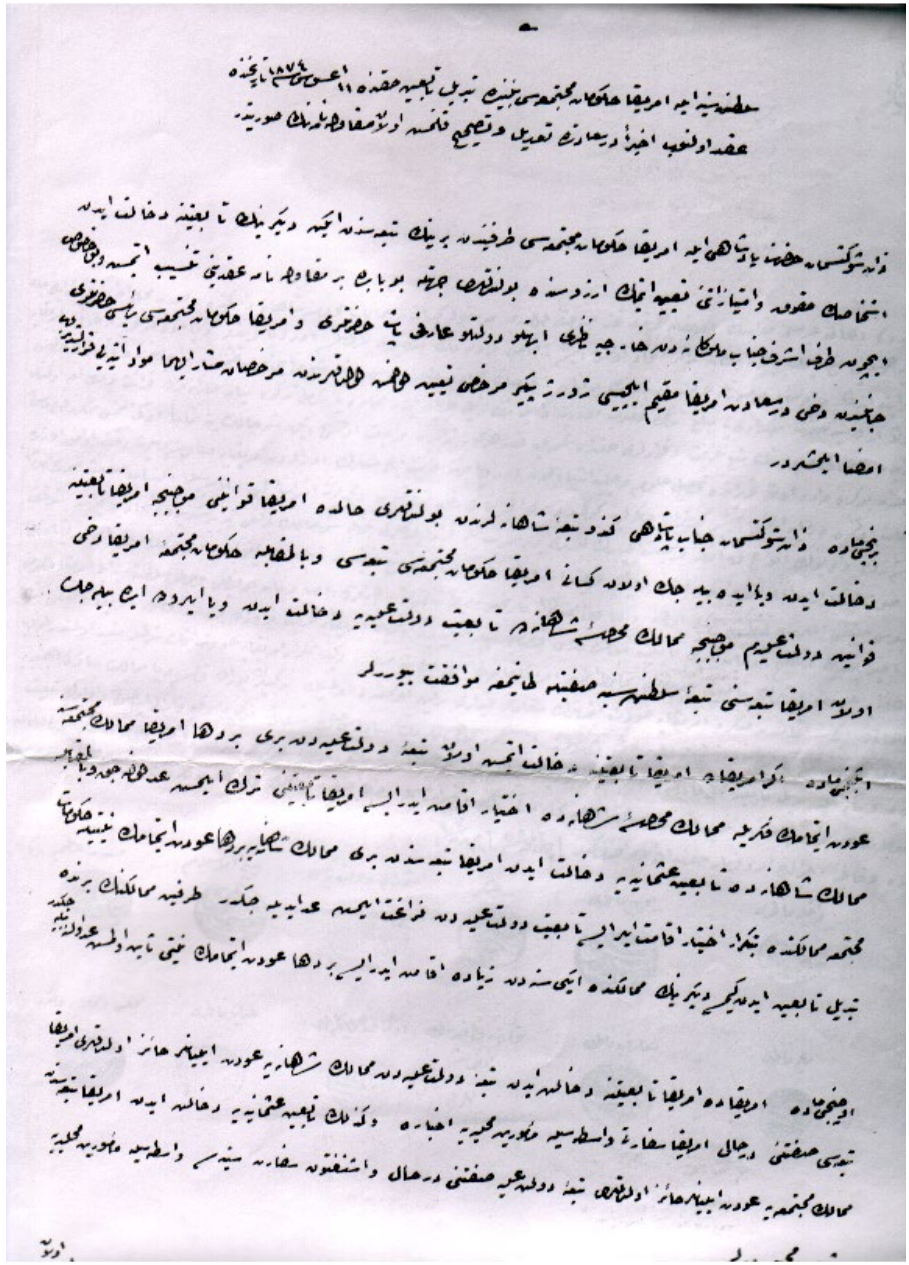 سلطنت سنیه ایله امریقا حکومات مجتمعه‌سی بیننده تبدیل تابعیت حقنده ١١ اغستوس سنه ١٨٧٤ تاریخنده
عقد اولنوب اخیراً درسعادتده تعدیل و تصحیح قلنمش اولان مقاوله‌نامه‌نك صورتیدر
ذات شوکتسمات حضرت پادشاهی ایله امریقا حکومات مجتمعه‌سی طرفیندن برینك تبعه‌سندن ایکن دیکرینك تابعیتنه دخالت ایدن
اشخاصك حقوق و امتیازاتنی تعیین ایتمك ارزوسنده بولندقلری جهتله بو بابده بر مقاوله‌نامه عقدینی تنسیب ایتمش و بو خصوص
ایچون طرف اشرف جناب ملوکانه‌دن خارجیه ناظری ابهتلو دولتلو عارفی پاشا حضرتلری و امریقا حکومات مجتمعه‌سی رئیسی حضرتلری
جانبندن دخی درسعادتده امریقا مقیم ایلچیسی مرخص تعیین قلنمش اولدقلرندن مرخصان مشار الیهما مواد آتیه‌یی قرارلشدیروب
امضا ایلمشلردر
برنجی ماده ذات شوکتسمات جناب پادشاهی کندو تبعۀ شاهانه‌لرندن بولندقلری حالده امریقا قوانینی موجبنجه امریقا تابعیتنه
دخالت ایدن ویا ایده بیله جك اولان کسانی امریقا حکومات مجتمعه‌سی تبعه‌سی وبالمقابله حکومات مجتمعۀ امریقا دخی
قوانین دولت علیه موجبنجه ممالك محروسۀ شاهانه‌ده تابعیت دولت علیه‌یه دخالت ایدن ویا ایده بیله جك
اولان امریقا تبعه‌سنی تبعۀ سلطنت سنیه صفتیله طانیمغه موافقت ایدرلر
ایکنجی ماده اکر امریقاده امریقا تابعیتنه دخالت ایتمش اولان تبعۀ دولت علیه‌دن بری بر دها امریقا ممالك مجتمعه‌سنه
عودت ایتمامك فکریله ممالك محروسۀ شاهانه‌ده اختیار اقامت ایدر ایسه امریقا تابعیتنی ترك ایلمش عد اولنه‌جق وبالمقابله
ممالك شاهانه‌ده تابعیت عثمانیه‌یه دخالت ایدن امریقا تبعه‌سندن بری ممالك شاهانه‌یه بر دها عودت ایتمامك نیتیله حکومات
مجتمعه ممالکنده تکرار اختیار اقامت ایدر ایسه تابعیت دولت علیه‌دن فراغت ایلمش عد ایدیله‌جکدر طرفین ممالکنك برنده
تبدیل تابعیت ایدن کیمسه دیکرینك ممالکنده ایکی سنه‌دن زیاده اقامت ایدر ایسه بر دها عودت ایتمامك نیتی ثابت اولمش عد اولنه بیله‌جکدر
اوچنجی ماده امریقاده امریقا تابعیتنه دخالت ایدن تبعۀ دولت علیه‌دن ممالك شاهانه‌یه عودت ایدنلر حائز اولدقلری امریقا
تبعه‌سی صفتنی درحال امریقا سفارتی واسطه‌سیله مأمورین محلیه‌یه اخباره وکذلك تابعیت عثمانیه‌یه دخالت ایدن امریقا تبعه‌سندن
ممالك مجتمعه‌یه عودت ایدنلر حائز اولدقلری تبعۀ دولت علیه صفتنی درحال واشنغتون سفارت سنیه‌سی واسطه‌سیله مأمورین محلیه‌یه
اولان